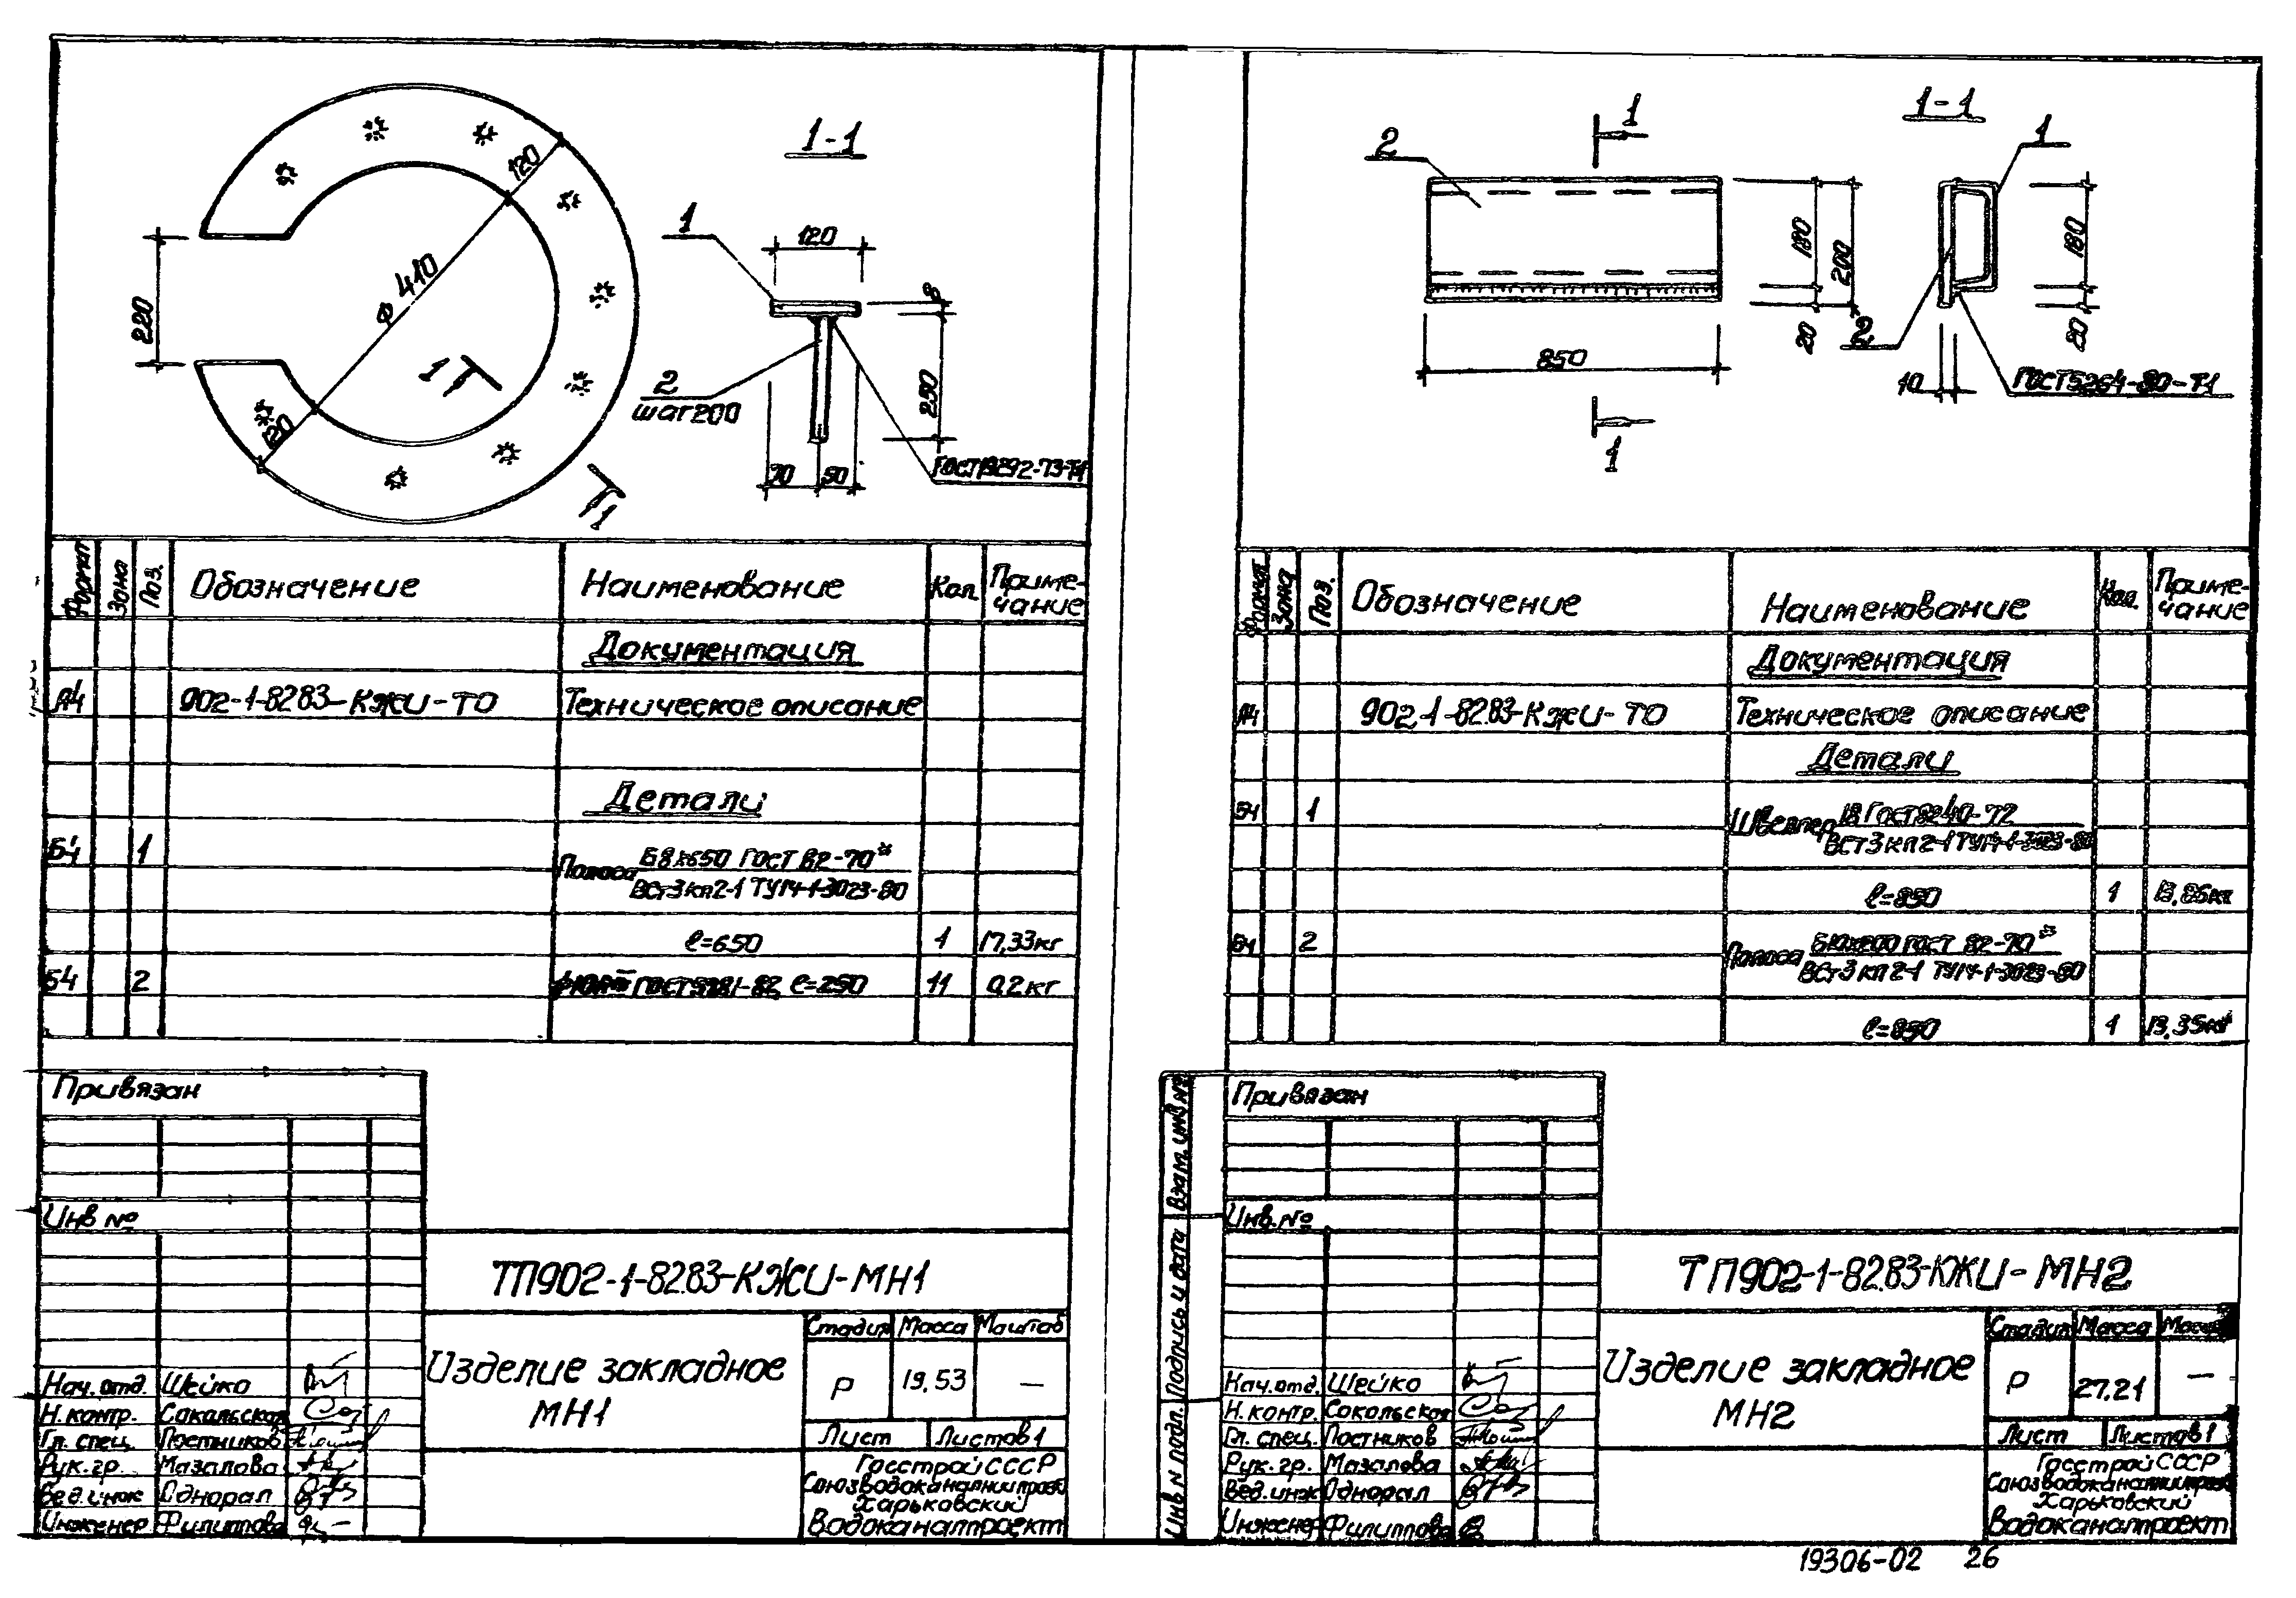 1-1
120
Φ 410
220
120
1
1
1
120
8
2
шаг200
250
50
Формат
Зона
Поз.
Обозначение
Наименование
Кол.
Приме-
чание
Документация
А4
902-1-82.83-КЖИ-ТО
Техническое описание
Детали
Б4
1
Полоса Б8х650 ГОСТ 82-70*
ВСт3кп2-1 ТУ14-1-3023-80
ℓ=650
1
17,33кг
Б4
2
ГОСТ5781-82, ℓ=250
11
0,2кг
Привязан
Инв №
ТП902-1-82.83-КЖИ-МН1
Изделие закладное
МН1
Стадия
Масса
Масштаб
Р
19,53
—
Лист
Листов 1
Госстрой СССР
Союзводоканалниипроект
Харьковский
Водоканалпроект
Нач.отд. Шейко
Н.контр. Сокольская
Гл. спец. Постников
Рук.гр. Мазалова
Вед.инж Однорал
Инженер Филиппова
1
1-1
2
1
180
200
20
850
1
2
10
180
20
ГОСТ5264-80-Т1
Формат
Зона
Поз.
Обозначение
Наименование
Кол.
Приме-
чание
Документация
А4
902-1-82.83-КЖИ-ТО
Техническое описание
Детали
Б4
1
Швеллер 18 ГОСТ8240-72
ВСт3кп2-1 ТУ14-1-3023-80
ℓ=850
1
13,86кг
Б4
2
Полоса Б10х200 ГОСТ 82-70*
ВСт3кп2-1 ТУ14-1-3023-80
ℓ=850
1
13,35кг
Привязан
Инв.№
Взам. инв №
Подпись и дата
Инв N подл.
ТП902-1-82.83-КЖИ-МН2
Изделие закладное
МН2
Стадия
Масса
Р
27.21
—
Лист
Листов 1
Госстрой СССР
Союзводоканалниипроект
Харьковский
Водоканалпроект
Нач.отд. Шейко
Н.контр. Сокольская
Гл. спец. Постников
Рук.гр. Мазалова
Вед.инж Однорал
Инженер Филиппова
19306-02 26